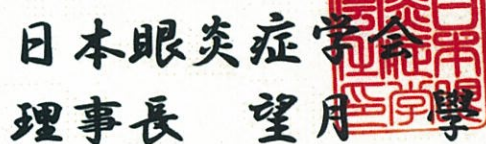 日本眼炎症学会
理事長　望月　學